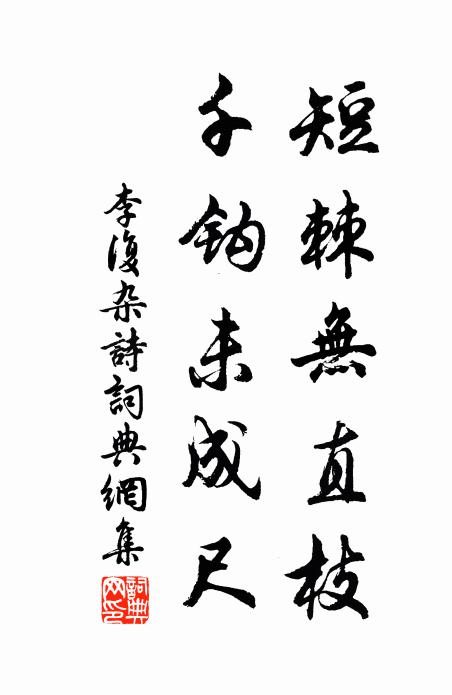 短棘無直枝
千鈎未成尺
李復杂詩詞典網集
詞典網印